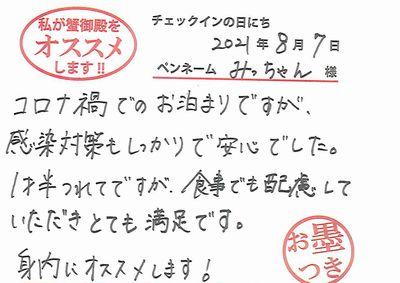 私が蟹御殿を
オススメ
します!!
チェックインの日にち
2021年8月7日
ペンネーム みっちゃん 様
コロナ禍でのお泊まりですが、
感染対策もしっかりで安心でした。
1才半つれてですが、食事でも配慮して
いただきとても満足です。
身内にオススメします!
お墨
つき